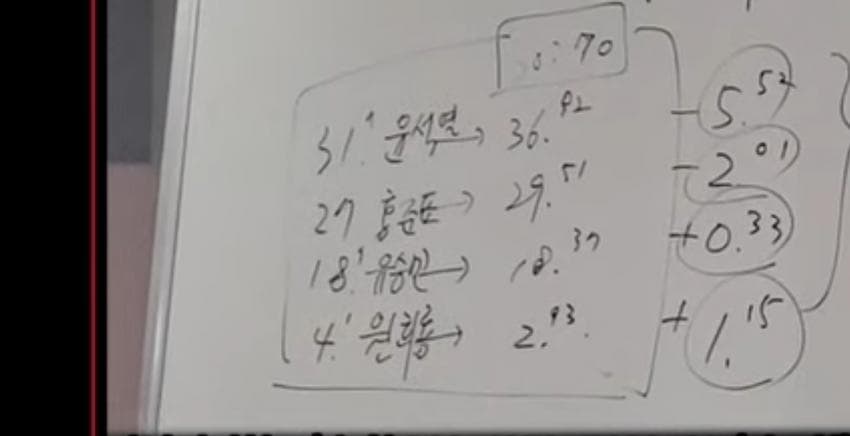 : 70
31.4 윤석열 → 36.92 - 5.52
27 홍준표 → 29.51 - 2.01
18.1 유승민 → 18.37 + 0.33
4.1 원희룡 → 2.93 + 1.15